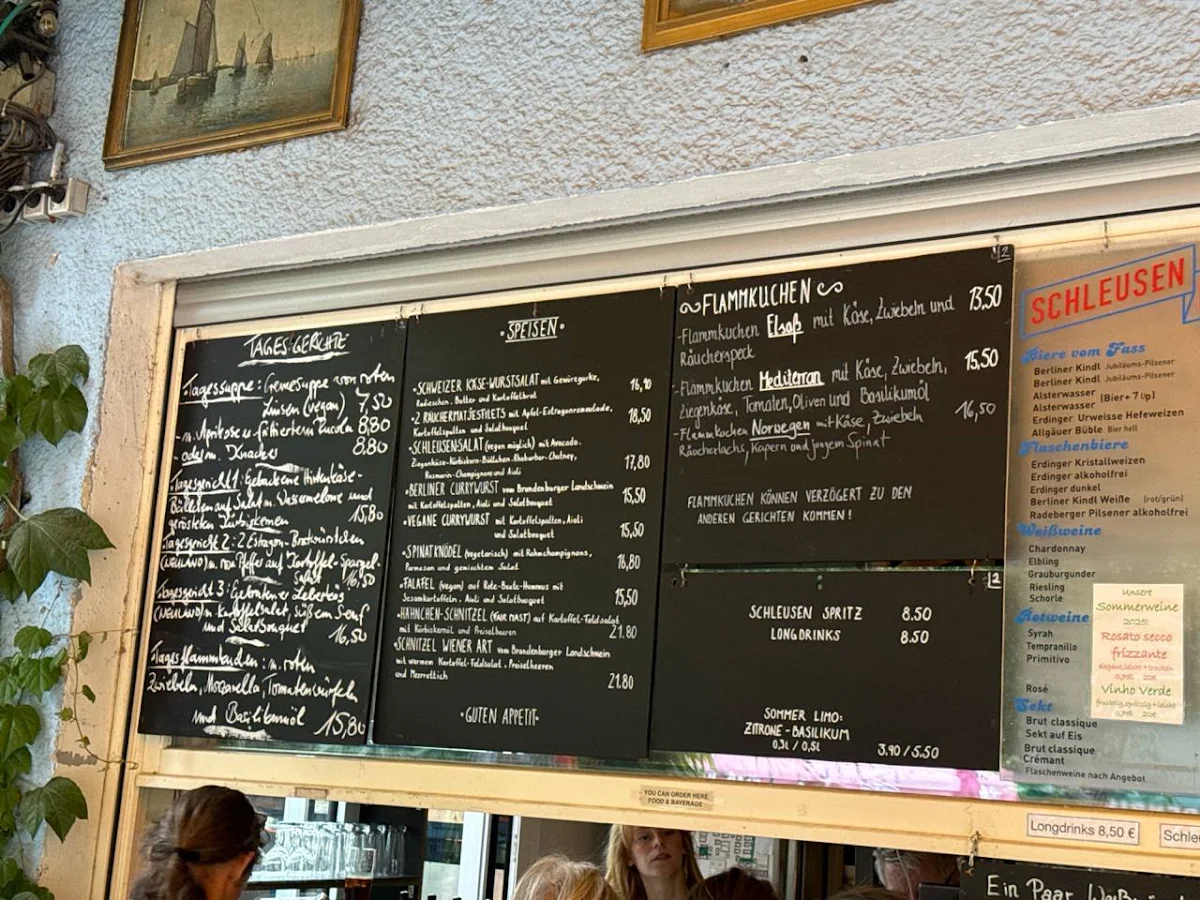 TAGESGERICHTE
Tagessuppe: Cremesuppe von roten
Linsen (vegan) 7,50
m. Aprikose u. frittiertem Rucola 8,80
- oder m. Knacker 8,80
Tagesgericht 1: Gebackene Hirtenkäse-
Bällchen auf Salat m. Wassermelone und
gerösteten Kürbiskernen 15,80
Tagesgericht 2: 2 Estragon-Bratwürstchen
(NEULAND) m. Pfeffer auf Kartoffel-Spargel-
Salat 16,50
Tagesgericht 3: Gebratener Leberkäs
(NEULAND) m. Kartoffelsalat, süßem Senf
und Salatbouquet 16,50
Tagesflammkuchen: m. roten
Zwiebeln, Mozzarella, Tomatenwürfeln
und Basilikumöl 15,80
•SPEISEN•
•SCHWEIZER KÄSE-WURSTSALAT mit Gewürzgurke, 16,90
Radieschen, Butter und Kartoffelbrot
•2 RÄUCHERMATJESFILETS mit Apfel-Estragonremoulade, 18,50
Kartoffelspalten und Salatbouquet
•SCHLEUSENSALAT (vegan möglich) mit Avocado,
Ziegenkäse-Kürbiskern-Bällchen, Rhabarber-Chutney, 17,80
Rosmarin-Champignons und Aioli
•BERLINER CURRYWURST vom Brandenburger Landschwein 15,50
mit Kartoffelspalten, Aioli und Salatbouquet
•VEGANE CURRYWURST mit Kartoffelspalten, Aioli 15,50
und Salatbouquet
•SPINATKNÖDEL (vegetarisch) mit Rahmchampignons, 16,80
Parmesan und gemischtem Salat
•FALAFEL (vegan) auf Rote-Beete-Hummus mit 15,50
Sesamkartoffeln, Aioli und Salatbouquet
•HÄHNCHEN-SCHNITZEL (FAIR MAST) auf Kartoffel-Feldsalat
mit Kürbiskernöl und Preiselbeeren 21.80
•SCHNITZEL WIENER ART vom Brandenburger Landschwein
mit warmem Kartoffel-Feldsalat, Preiselbeeren
und Meerrettich 21.80
•GUTEN APPETIT•
2
FLAMMKUCHEN
-Flammkuchen Elsaß mit Käse, Zwiebeln und 13,50
Räucherspeck
-Flammkuchen Mediterran mit Käse, Zwiebeln, 15,50
Ziegenkäse, Tomaten, Oliven und Basilikumöl
-Flammkuchen Norwegen mit Käse, Zwiebeln 16,50
Räucherlachs, Kapern und jungem Spinat
FLAMMKUCHEN KÖNNEN VERZÖGERT ZU DEN
ANDEREN GERICHTEN KOMMEN!
2
SCHLEUSEN SPRITZ 8.50
LONGDRINKS 8.50
SOMMER LIMO:
ZITRONE-BASILIKUM
0,3L / 0,5L 3.90 / 5.50
SCHLEUSEN
Biere vom Fass
Berliner Kindl Jubiläums-Pilsener
Berliner Kindl Jubiläums-Pilsener
Alsterwasser
Alsterwasser (Bier + 7 Up)
Erdinger Urweisse Hefeweizen
Allgäuer Büble Bier hell
Flaschenbiere
Erdinger Kristallweizen
Erdinger alkoholfrei
Erdinger dunkel
Berliner Kindl Weiße (rot/grün)
Radeberger Pilsener alkoholfrei
Weißweine
Chardonnay
Elbling
Grauburgunder
Riesling
Schorle
Rotweine
Syrah
Tempranillo
Primitivo
Rosé
Sekt
Brut classique
Sekt auf Eis
Brut classique
Crémant
Flaschenweine nach Angebot
Unsere
Sommerweine
2025:
Rosato secco
frizzante
elegant, leicht + trocken
0,75L 22€
Vinho Verde
fruchtig, spritzig + leicht
0,75L 22€
YOU CAN ORDER HERE
FOOD & BAVERAGE
Longdrinks 8,50 €
Schleu
Ein Paar